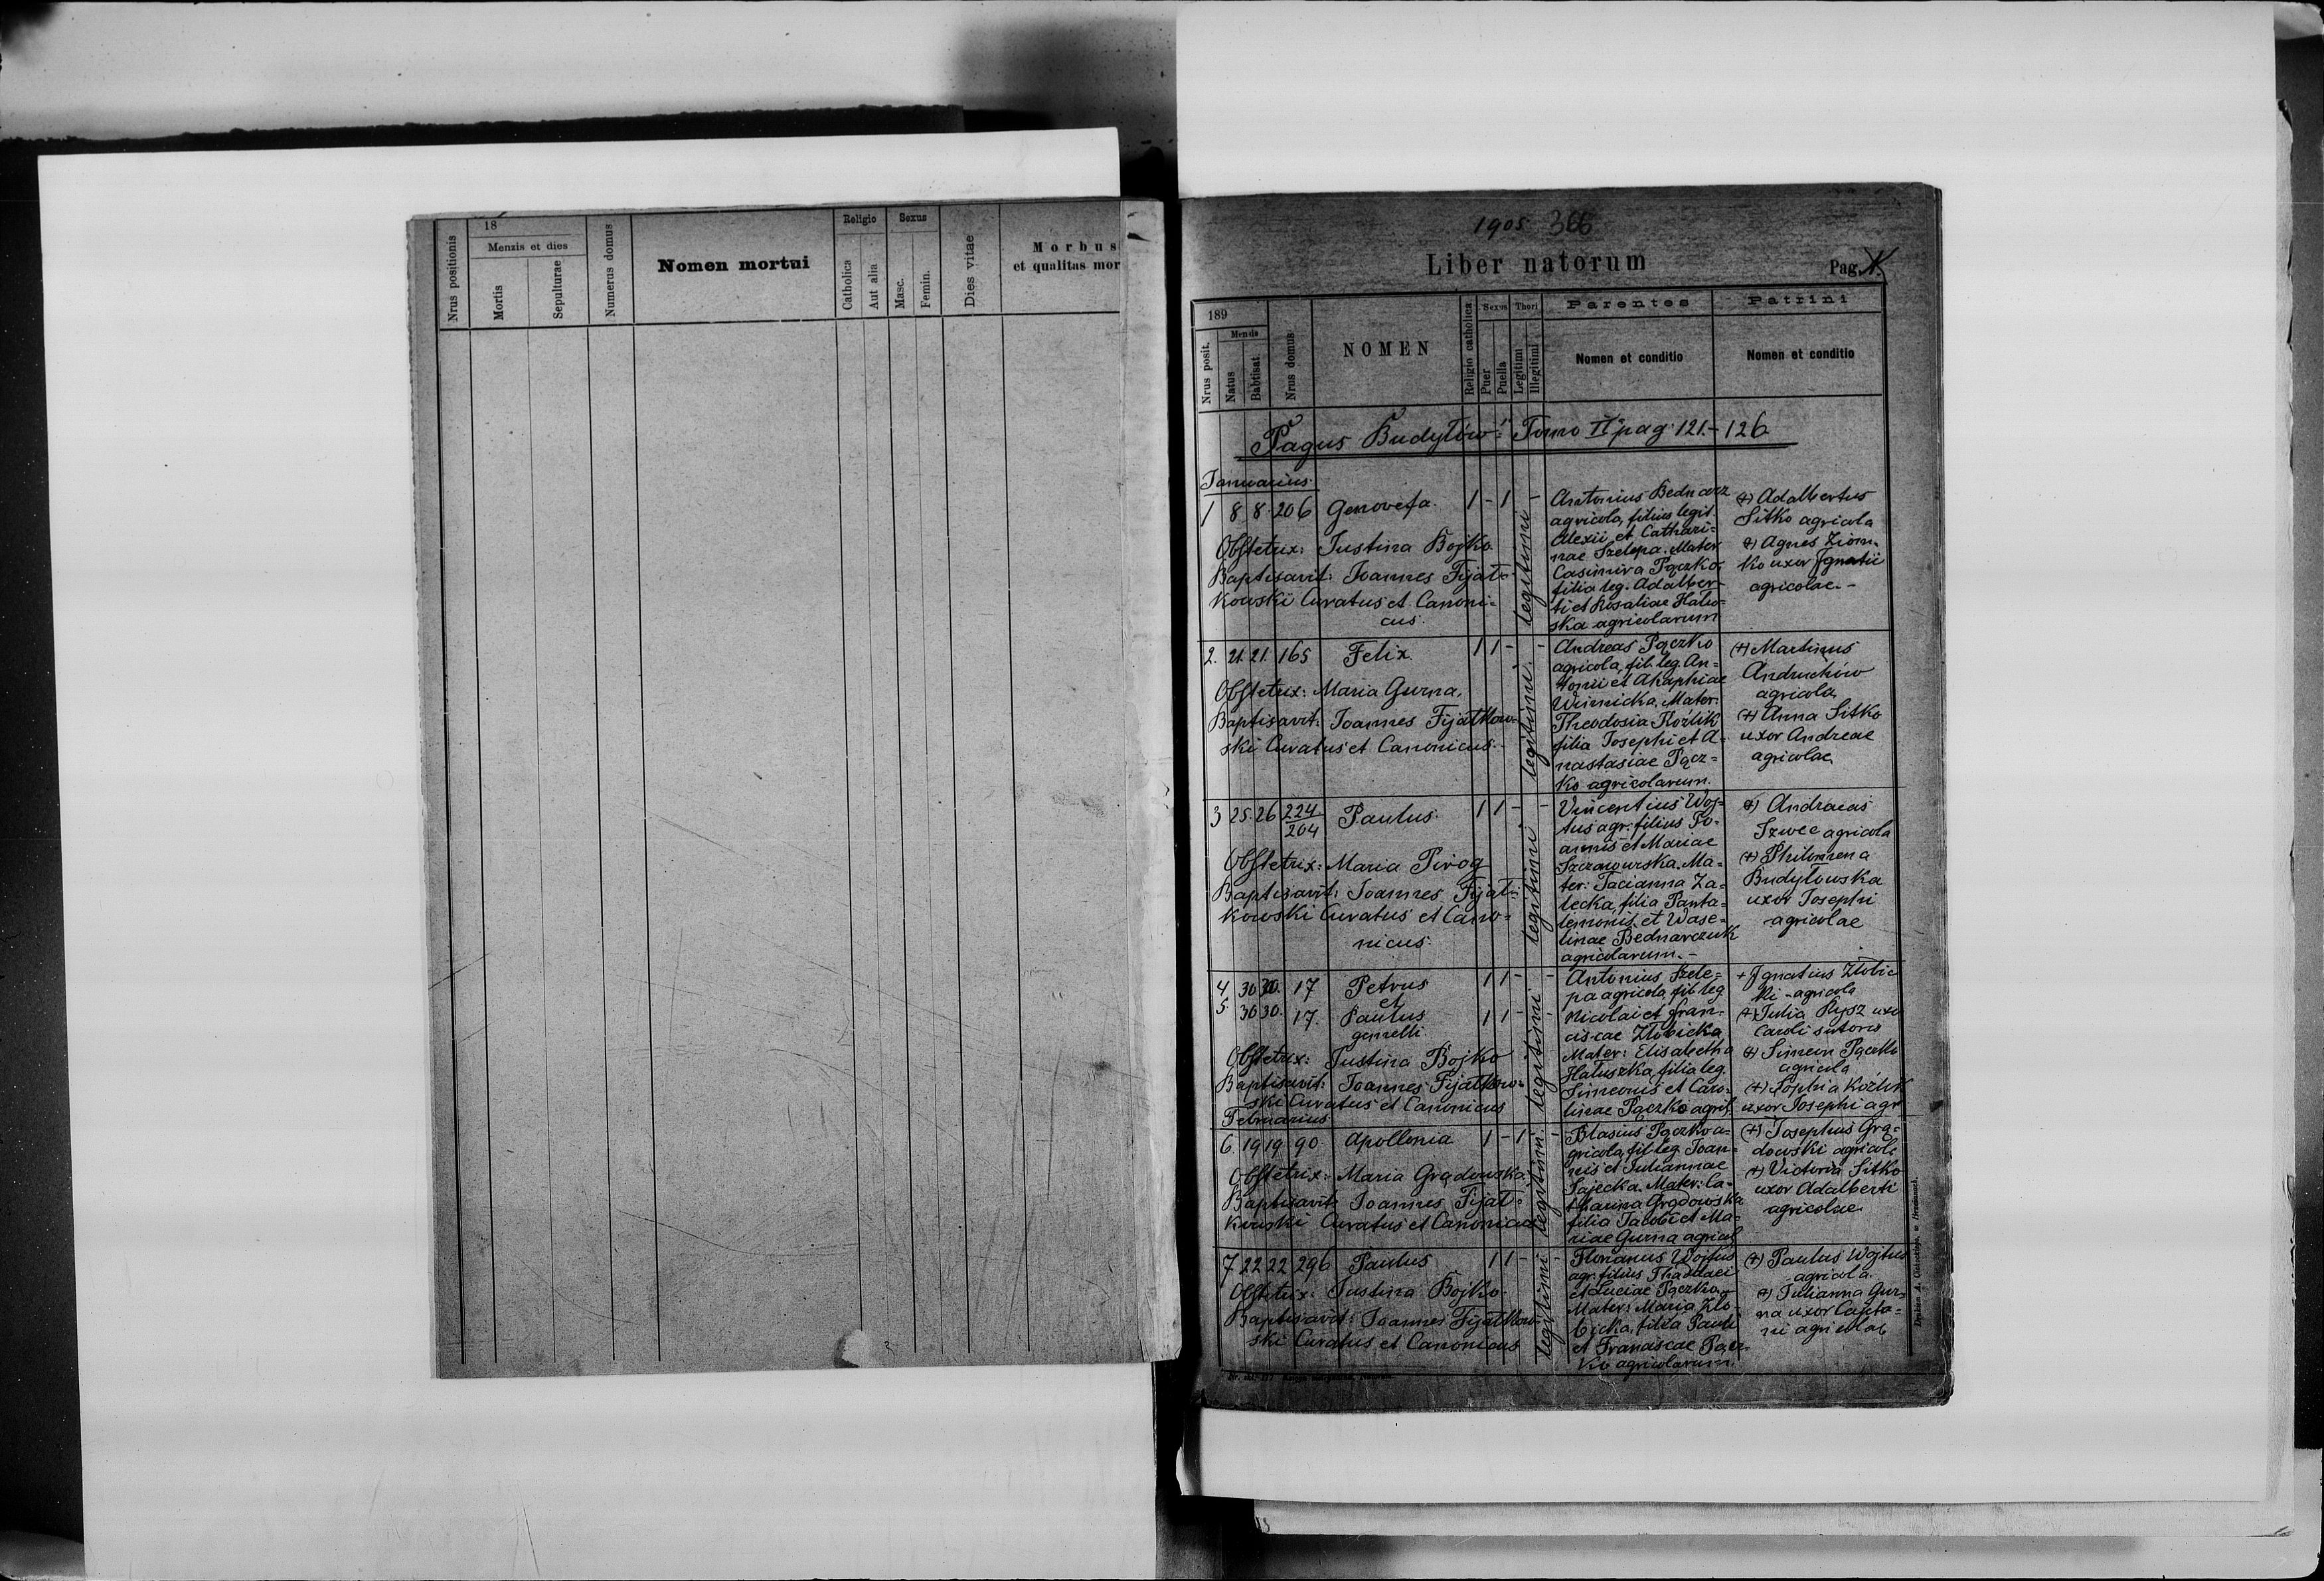 18
Nrus positionis
Menzis et dies
Mortis
Sepulturae
Numerus domus
Nomen mortui
Religio
Catholica
Aut alia
Sexus
Masc.
Femin.
Dies vitae
Morbus
et qualitas mor
1905 366
Liber natorum
Pag. 1.
189
Nrus posit.
Mensis
Natus
Babtisat.
Nrus domus
NOMEN
Religio catholica
Sexus
Puer
Puella
Thori
Legitimi
Illegitimi
Parentes
Nomen et conditio
Patrini
Nomen et conditio
Pagus Budyłów: Tomo II pag. 121.-126
Januarius.
1 8 8. 206 Genovefa. 1 - 1 -
legitimi
Obstetrix: Justina Bojko.
Baptisavit: Joannes Fijał-
kowski Curatus et Canoni-
cus.
Antonius Bednarz
agricola, filius legit.
Alexii et Cathari-
nae Szelepa. Mater
Casimira Pączko,
filia leg. Adalber-
ti et Rosaliae
agricolarum
(+) Adalbertus
Sitko agricola
(+) Agnes Ziom-
ko uxor Ignatii
agricolae.-
2. 21. 21. 165 Felix. 1 1 - -
legitimi
Obstetrix: Maria Gurna.
Baptisavit: Joannes Fijałkow-
ski Curatus et Canonicus.
Andreas Pączko
agricola, fil. leg. An-
tonii et Ahaphiae
Winnicka. Mater.
Theodosia Koźlik
filia Josephi et A-
nastasiae Pącz-
ko agricolarum.
(+) Martinus
Andruchów
agricola,
(+) Anna Sitko
uxor Andreae
agricolae
3 25. 26 224/204 Paulus. 1 1 - -
legitimi
Obstetrix: Maria Pirog
Baptisavit: Joannes Fijał-
kowski Curatus et Cano-
nicus.
Vincentius Woj-
tus agr. filius Jo-
annis et Mariae
Ma-
ter: Tacianna Za-
lecka, filia Panta-
lemonis et Wase-
linae Bednarczuk
agricolarum.-
(+) Andraeas
Szwec agricola
(+) Philomena
Budyłowska
uxor Josephi
agricolae
4 30 30. 17 Petrus 1 1 - -
et
5. 30 30. 17. Paulus 1 1 - -
gemelli.
legitimi
Obstetrix: Justina Bojko
Baptisavit: Joannes Fijałkow-
ski Curatus et Canonicus
Antonius Szele-
pa agricola, fil. leg
Nicolai et Fran-
ciscae Złobicka
Mater: Elisabetha
Hałuszka, filia leg.
Simeonis et Caro-
linae Pączko agric.
+ Ignatius Złobic
ki - agricola
(+) Julia Rysz uxo
Caroli sutoris
(+) Simeon Pączko
agricola
(+) Sophia Koźlik
uxor Josephi agr
Februarius
6. 19 19. 90. Apollonia 1 - 1 -
legitimi
Obstetrix: Maria Grądowska.
Baptisavit: Joannes Fijał-
kowski Curatus et Canonicus
Blasius Pączko a-
gricola, fil. leg. Joan-
nis et Juliannae
Sajecka. Mater: Ca-
tharina Grądowska
filia Jacobi et Ma-
riae Gurna agricol.
(+) Josephus Grą-
dowski agricola
(+) Victoria Sitko
uxor Adalberti
agricolae.
7 22 22 296 Paulus 1 1 - -
legitimi
Obstetrix: Justina Bojko.
Baptisavit: Joannes Fijałkow-
ski Curatus et Canonicus
Florianus Wojtus
agr. filius Thaddaei
et Luciae Pączko.
Mater: Maria Zło-
bicka, filia Pauli
et Franciscae Pącz-
ko agricolarum.
(+) Paulus Wojtus
agricola.
(+) Julianna Gur-
na uxor Cajeta-
ni agricolae